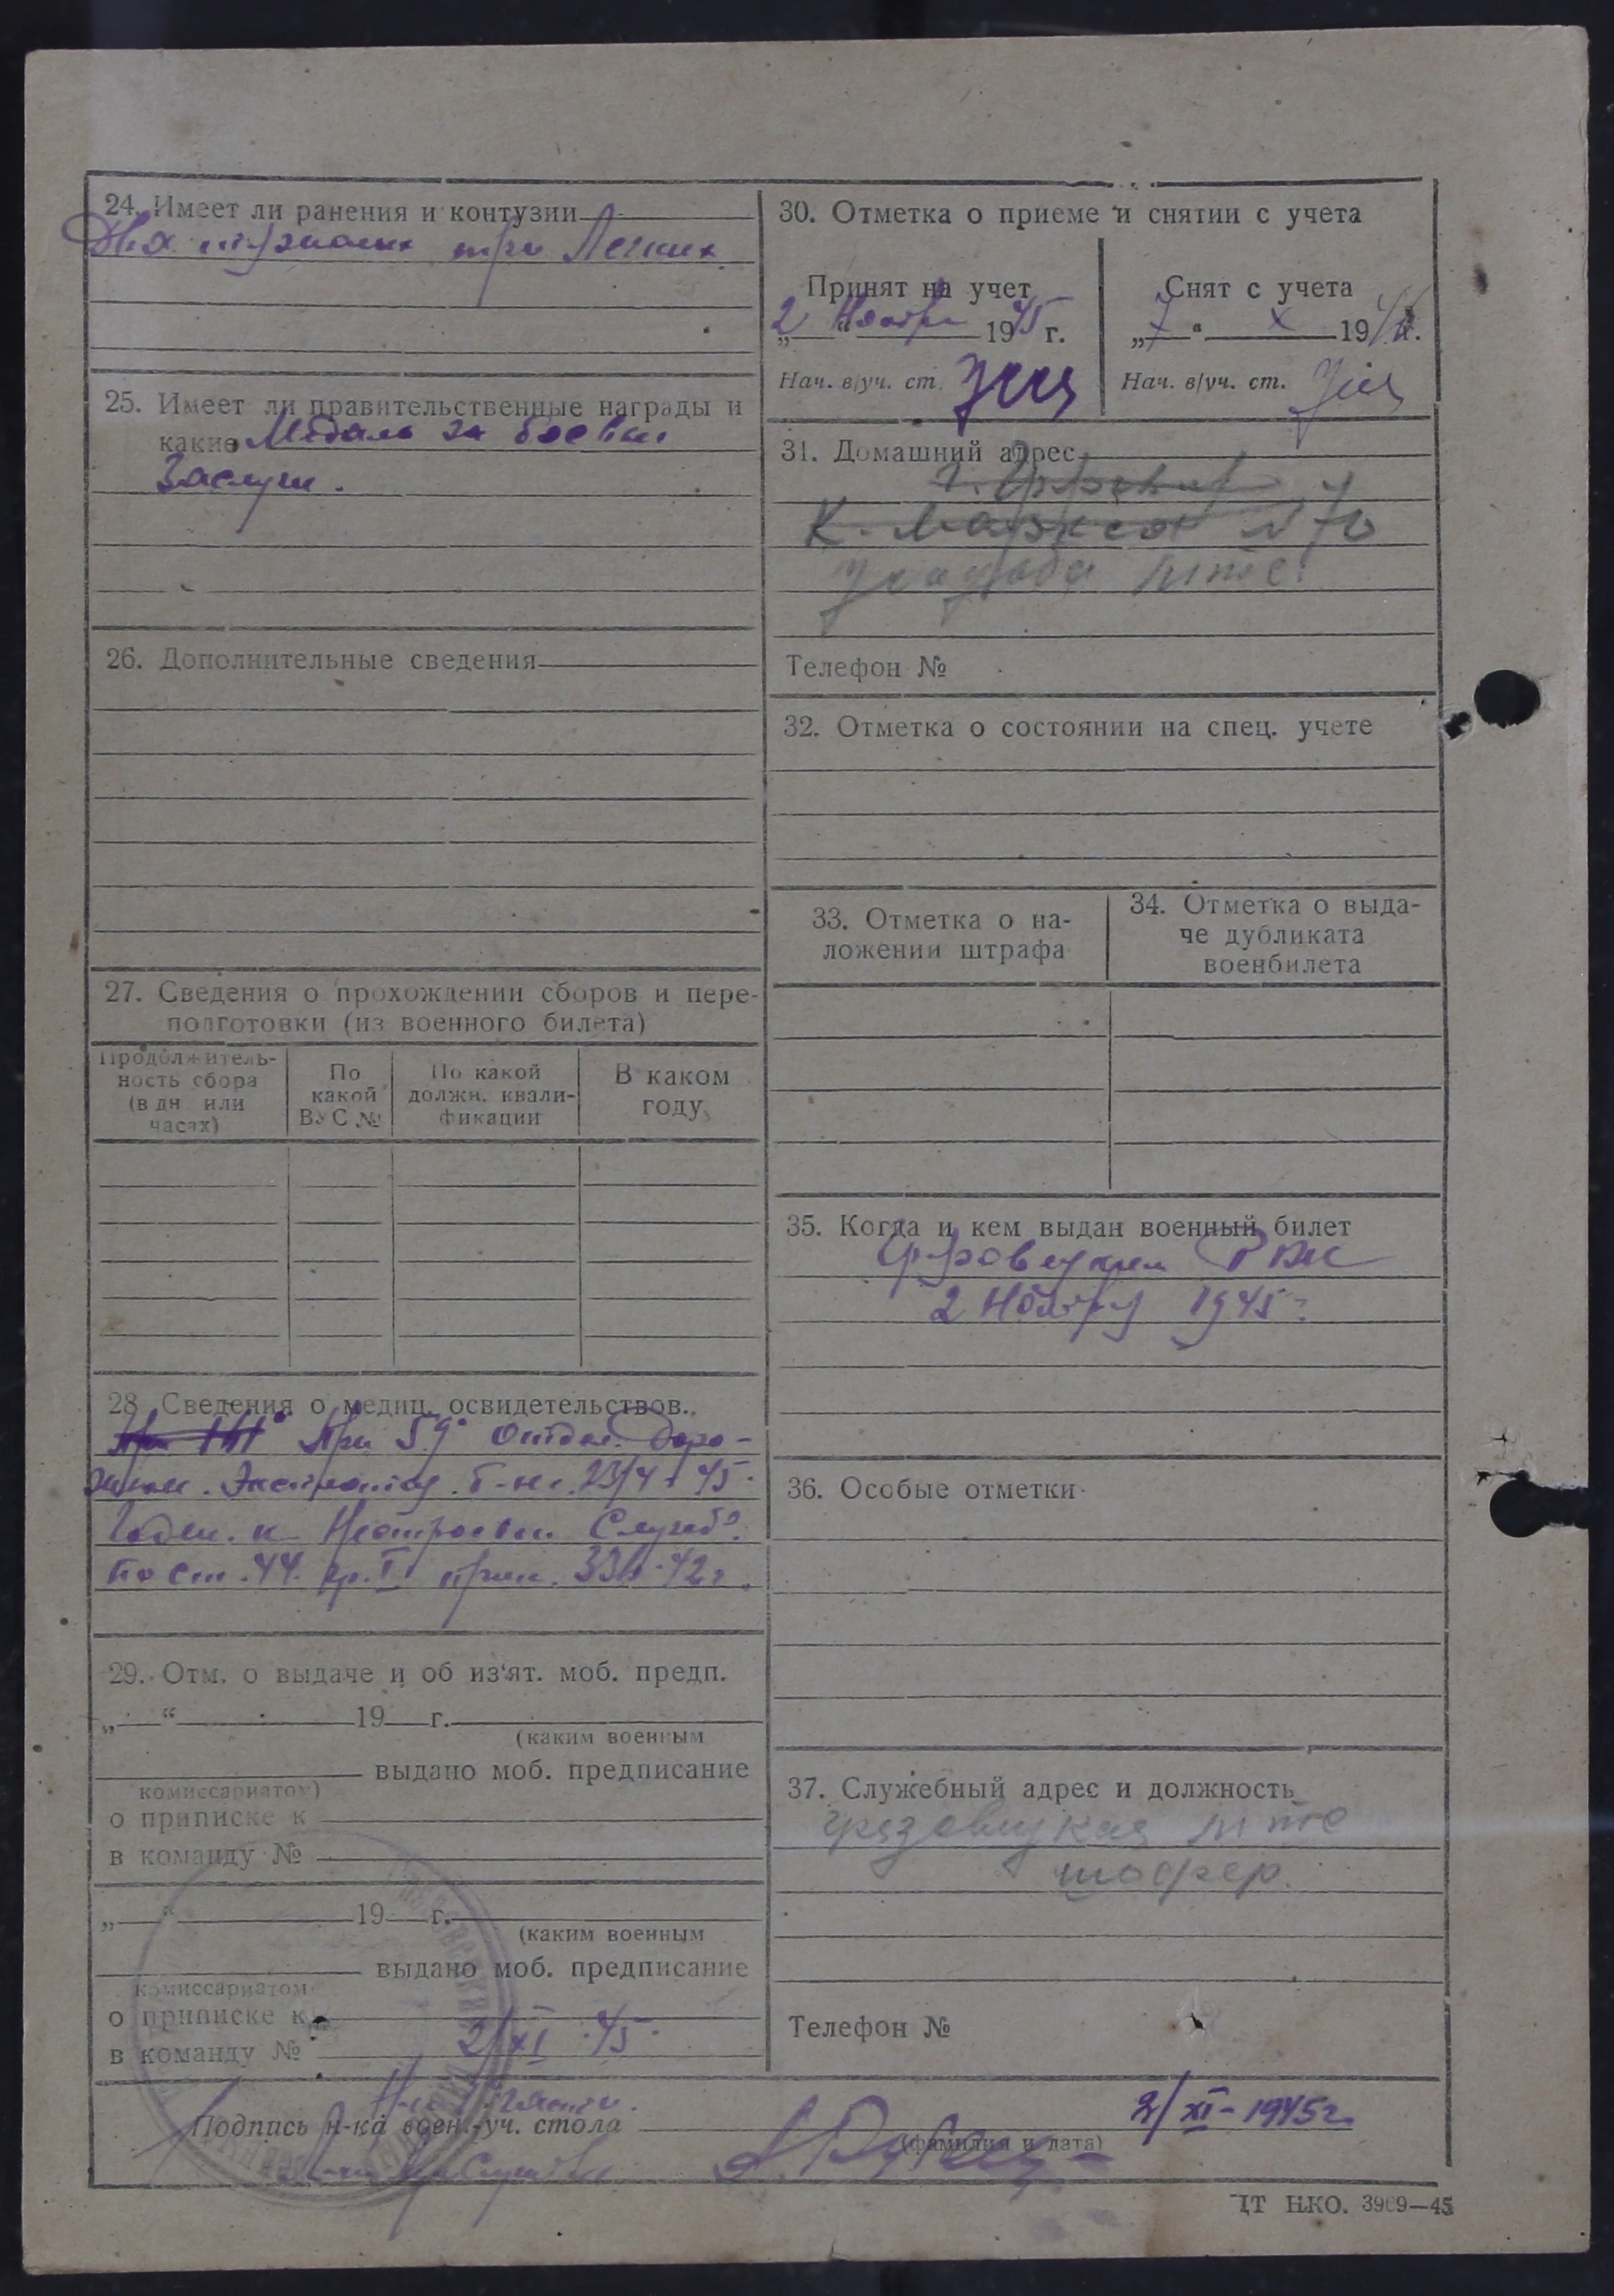 24. Имеет ли ранения и контузии
Два тяжелых три Легких
25. Имеет ли правительственные награды и
какие Медаль за боевые
Заслуги.
26. Дополнительные сведения
27. Сведения о прохождении сборов и пере-
подготовки (из военного билета)
Продолжитель-
ность сбора
(в дн. или
часах)
По
какой
ВУС №
По какой
должн. квали-
фикации
В каком
году
28. Сведения о медиц. освидетельствов.
При 59 отдел. Доро-
жном. Эксплоатац. б-не. 23/4 - 45.
Годен. к Нестроевой Службе.
по ст. 44. гр. I прик. 336-42г.
29. Отм. о выдаче и об из'ят. моб. предп.
„ “ 19 г.
(каким военным
выдано моб. предписание
комиссариатом)
о приписке к
в команду №
„ “ 19 г.
(каким военным
выдано моб. предписание
комиссариатом
о приписке к
в команду № 2/XI 45.
30. Отметка о приеме и снятии с учета
Принят на учет
„2“ Ноября 1945 г.
Нач. в/уч. ст.
Снят с учета
„7“ X 194 г.
Нач. в/уч. ст.
31. Домашний адрес
К. Маркса № 70
усадьба МТС.
Телефон №
32. Отметка о состоянии на спец. учете
33. Отметка о на-
ложении штрафа
34. Отметка о выда-
че дубликата
военбилета
35. Когда и кем выдан военный билет
Грязовецким РВК
2 Ноября 1945 г.
36. Особые отметки
37. Служебный адрес и должность
Грязовецкая МТС
шофер.
Телефон №
Подпись н-ка воен.-уч. стола
2/XI-1945г.
(фамилия и дата)
ЦТ НКО. 3969—45